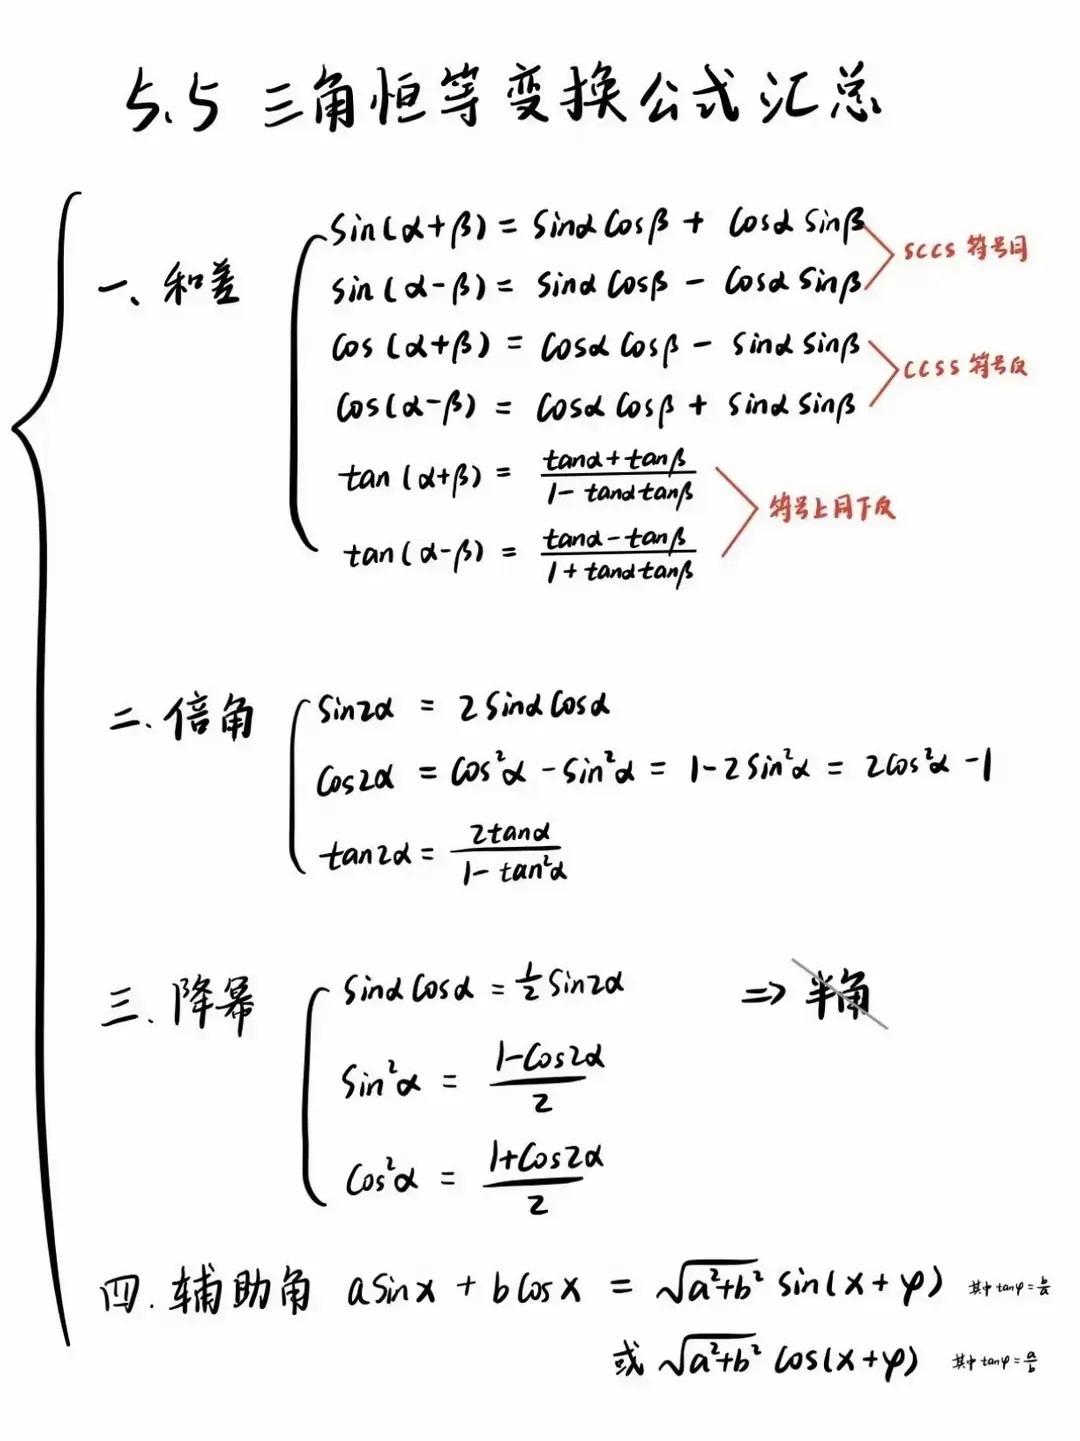 5.5 三角恒等变换公式汇总
一、和差
sin(α+β) = sinα cosβ + cosα sinβ
sin(α-β) = sinα cosβ - cosα sinβ
SCCS 符号同
cos(α+β) = cosα cosβ - sinα sinβ
cos(α-β) = cosα cosβ + sinα sinβ
CCSS 符号反
tan(α+β) = (tanα+tanβ)/(1-tanαtanβ)
tan(α-β) = (tanα-tanβ)/(1+tanαtanβ)
符号上同下反
二.倍角
sin2α = 2sinαcosα
cos2α = cos²α - sin²α = 1-2sin²α = 2cos²α -1
tan2α = 2tanα/(1-tan²α)
三.降幂
sinαcosα = ½sin2α
=> 半角
sin²α = (1-cos2α)/2
cos²α = (1+cos2α)/2
四.辅助角 asinx + bcosx = √(a²+b²) sin(x+φ) 其中tanφ=b/a
或 √(a²+b²) cos(x+φ) 其中tanφ=a/b